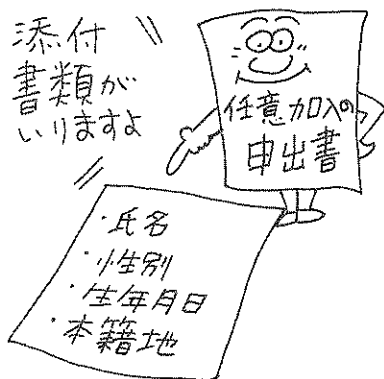 添付
書類が
いりますよ
任意加入の
申出書
・氏名
・性別
・生年月日
・本籍地